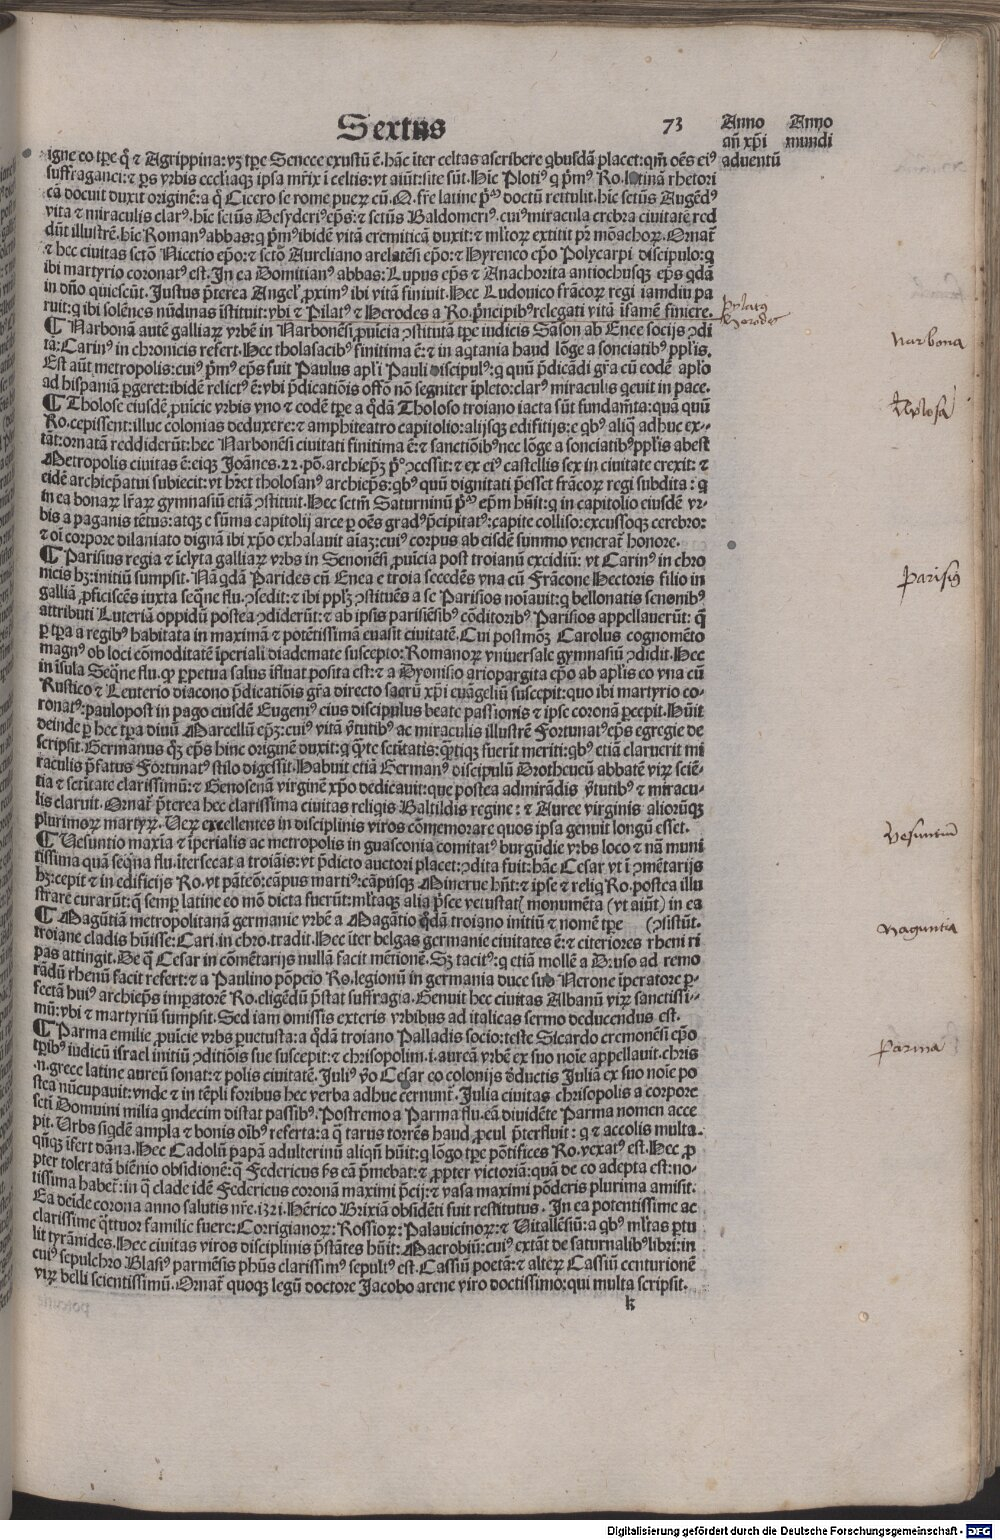 Sextus 73 Anno Anno
añ xp̄i mundi
aduentū
igne eo tpe q̄ ⁊ Agrippina: vʒ tpe Senece exustū ē. hāc īter celtas ascribere qbusdā placet: qm̄ oēs eiꝰ
suffraganei: ⁊ ps vrbis eccl̄iaqʒ ipsa mr̄ix ī celtis: vt aiūt: site sūt. Hic Plotiꝰ q pmꝰ Ro. latinā rhetori
cā docuit duxit originē: a q̄ Cicero se rome puer cū. Q. fr̄e latine doctū rettulit. hic sctūs Augēdꝰ
vita ⁊ miraculis clarꝰ. hic sctūs Desyderiꝰ ep̄s: ⁊ sctūs Baldomerꝰ. cuiꝰ miracula crebra ciuitatē red
dūt illustrē. hic Romanꝰ abbas: q pmꝰ ibidē vitā eremiticā duxit: ⁊ ml̄toꝝ extitit pr̄ mōachoꝝ. Ornat̄
⁊ hec ciuitas sctō Nicetio ep̄o: ⁊ sctō Aureliano arelatēsi ep̄o: ⁊ Hyreneo ep̄o Polycarpi discipulo: q
ibi martyrio coronatꝰ est. In ea Domitianꝰ abbas: Lupus ep̄s ⁊ Anachorita antiochusqʒ ep̄s qdā
in dn̄o quiescūt. Justus p̄terea Angelꝰ proximꝰ ibi vitā finiuit. Hec Ludouico frācoꝝ regi iamdiu pa
ruit: q ibi solēnes nūdinas īstituit: vbi ⁊ Pilatꝰ ⁊ Herodes a Ro. pncipibꝰ relegati vitā īfamē finiere.
Pylatus
Herodes
¶ Narbonā autē galliaꝝ vrbē in Narbonēsi prouīcia ↄstitutā tpe iudicis Sāson ab Enee socijs ↄdi
tā: Carinꝰ in chronicis refert. Hec tholasacibꝰ finitima ē: ⁊ in aqtania haud lōge a sonciatibꝰ pplis.
Narbona
Est aūt metropolis: cuiꝰ pmꝰ ep̄s fuit Paulus apl̄i Pauli discipulꝰ: q quū p̄dicādi gr̄a cū eodē apl̄o
ad hispaniā pgeret: ibidē relictꝰ ē: vbi p̄dicatiōis offō nō segniter īpleto: clarꝰ miraculis qeuit in pace.
¶ Tholose eiusdē prouīcie vrbis vno ⁊ eodē tpe a qdā Tholoso troiano iacta sūt fundam̄ta: quā quū
Tholosa
Ro. cepissent: illuc colonias deduxere: ⁊ amphiteatro capitolio: alijsqʒ edifitijs: e qbꝰ aliq̄ adhuc ex-
tāt: ornatā reddiderūt: hec Narbonēsi ciuitati finitima ē: ⁊ sanctiōibꝰ nec lōge a sonciatibꝰ pplis abest
Metropolis ciuitas ē: eiqʒ Joānes. 22. pō. archiep̄ʒ ↄcessit: ⁊ ex eiꝰ castellis sex in ciuitate erexit: ⁊
eidē archiep̄atui subiecit: vt h̄ret tholosanꝰ archiep̄s: qbꝰ quū dignitati p̄esset frācoꝝ regi subdita: q
in ea bonaꝝ lr̄aꝝ gymnasiū etiā ↄstituit. Hec sctm̄ Saturninū ep̄m hūit: q in capitolio eiusdē vr-
bis a paganis tētus: atqʒ e sūma capitolij arce p oēs gradꝰ p̄cipitatꝰ: capite colliso: excussoqʒ cerebro:
⁊ oī corpore dilaniato dignā ibi xp̄o exhalauit aīaʒ: cuiꝰ corpus ab eisdē summo venerat̄ honore.
¶ Parisius regia ⁊ īclyta galliaꝝ vrbs in Senonēsi prouīcia post troianū excidiū: vt Carinꝰ in chro
Parisiꝰ
nicis hʒ: initiū sumpsit. Nā qdā Parides cū Enea e troia secedēs vna cū Frācone Hectoris filio in
galliā proficiscēs iuxta seq̄ne flu. ↄsedit: ⁊ ibi pplʒ ↄstituēs a se Parisios noīauit: q bellonatis senonibꝰ
attributi Luteriā oppidū postea ↄdiderūt: ⁊ ab ipsis parisiēsibꝰ cōditoribꝰ Parisios appellauerūt: q̄
p tpa a regibꝰ habitata in maximā ⁊ potētissimā euasit ciuitatē. Cui postmodʒ Carolus cognomēto
magnꝰ ob loci cōmoditatē īperiali diademate suscepto: Romanoꝝ vniuersale gymnasiū ↄdidit. Hec
in īsula Seq̄ne flu. qʒ perpetua salus īfluat posita est: ⁊ a Dyonisio ariopargita ep̄o ab apl̄is eo vna cū
Rustico ⁊ Leuterio diacono p̄dicatiōis gr̄a directo sacrū xp̄i euāgeliū suscepit: quo ibi martyrio co-
ronatꝰ: paulopost in pago eiusdē Eugeniꝰ eius discipulus beate passionis ⁊ ipse coronā pcepit. Hūit
deinde p hec tpa diuū Marcellū ep̄ʒ: cuiꝰ vitā v̄tutibꝰ ac miraculis illustrē Fortunatꝰ ep̄s egregie de
scripsit. Germanus qʒ ep̄s hinc originē duxit: q q̄te sctītatis: q̄tiqʒ fuerit meriti: qbꝰ etiā claruerit mi
raculis p̄fatus Fortunatꝰ stilo digessit. Habuit etiā Germanꝰ discipulū Drotheueū abbatē viꝝ sciē-
tia ⁊ sctītate clarissimū: ⁊ Genofenā virginē xp̄o dedicauit: que postea admirādis v̄tutibꝰ ⁊ miracu-
lis claruit. Ornat̄ p̄terea hec clarissima ciuitas religis Baltildis regine: ⁊ Auree virginis aliorūqʒ
plurimoꝝ martyꝝ. Ueꝝ excellentes in disciplinis viros cōmemorare quos ipsa genuit longū esset.
¶ Uesuntio maxīa ⁊ īperialis ac metropolis in guasconia comitatꝰ burgūdie vrbs loco ⁊ nā muni
Vesuntium
tissima quā seq̄na flu. ītersecat a troiāis: vt p̄dicto auctori placet: ↄdita fuit: hāc Cesar vt ī ↄmētarijs
hʒ: cepit ⁊ in edificijs Ro. vt pāteō: cāpus martiꝰ: cāpusqʒ Minerue hūt: ⁊ ipse ⁊ reliq Ro. postea illu
strare curarūt: q̄ semp latine eo mō dicta fuerūt: ml̄taqʒ alia p̄sce vetustatꝭ monumēta (vt aiūt) in ea
¶ Magūtiā metropolitanā germanie vrbē a Magātio qdā troiano initiū ⁊ nomē tpe (ↄsistūt.
Maguntia
troiane cladis hūisse: Cari. in chro. tradit. Hec īter belgas germanie ciuitates ē: ⁊ citeriores rheni ri
pas attingit. De q̄ Cesar in cōmētarijs nullā facit mētionē. Sʒ tacitꝰ: q etiā mollē a Druso ad remo
rādū rhenū facit refert: ⁊ a Paulino pōpeio Ro. legionū in germania duce sub Nerone īperatore p-
fectā huiꝰ archiep̄s imperatorē Ro. eligēdū p̄stat suffragia. Genuit hec ciuitas Albanū viꝝ sanctissi-
mū: vbi ⁊ martyriū sumpsit. Sed iam omissis exteris vrbibus ad italicas sermo deducendus est.
¶ Parma emilie prouīcie vrbs puetusta: a qdā troiano Palladis socio: teste Sicardo cremonēsi ep̄o
Parma
tpibꝰ iudicū israel initiū ↄditiōis sue suscepit: ⁊ chrisopolim. i. aureā vrbē ex suo noīe appellauit. chris
.n. grece latine aureū sonat: ⁊ polis ciuitatē. Juliꝰ v̄o Cesar eo colonijs d̄ductis Juliā ex suo noīe po
stea nūcupauit: vnde ⁊ in tēpli foribus hec verba adhuc cernunt̄. Julia ciuitas chrisopolis a corpore
sctī Domuini milia qndecim distat passibꝰ. Postremo a Parma flu. eā diuidēte Parma nomen acce
pit. Urbs siqdē ampla ⁊ bonis oībꝰ referta: a q̄ tarus torrēs haud procul p̄terfluit: q ⁊ accolis multa.
qn̄qʒ īfert dāna. Hec Cadolū papā adulterinū aliqn̄ hūit: q lōgo tpe pōtifices Ro. vexatꝰ est. Hec pro
pter toleratā biēnio obsidionē: q̄ Federicus s̄s eā p̄mebat: ⁊ propter victoriā: quā de eo adepta est: no-
tissima habet̄: in q̄ clade idē Federicus coronā maximi p̄cij: ⁊ vasa maximi pōderis plurima amisit.
Ea deīde corona anno salutis nr̄e. 1321. Hērico Brixiā obsidēti fuit restitutus. In ea potentissime ac
clarissime q̄ttuor familie fuere: Corrigianoꝝ: Rossioꝝ: Palauicinoꝝ: ⁊ Uitallēsiū: a qbꝰ ml̄tas ptu
lit tyrānides. Hec ciuitas viros disciplinis p̄stātes hūit: Macrobiū: cuiꝰ extāt de saturnalibꝰ libri: in
cuiꝰ sepulchro Blasiꝰ parmēsis ph̄us clarissimꝰ sepultꝰ est. Cassiū poetā: ⁊ alteꝝ Cassiū centurionē
viꝝ belli scientissimū. Ornat̄ quoqʒ legū doctore Jacobo arene viro doctissimo: qui multa scripsit.
k
Digitalisierung gefördert durch die Deutsche Forschungsgemeinschaft - DFG